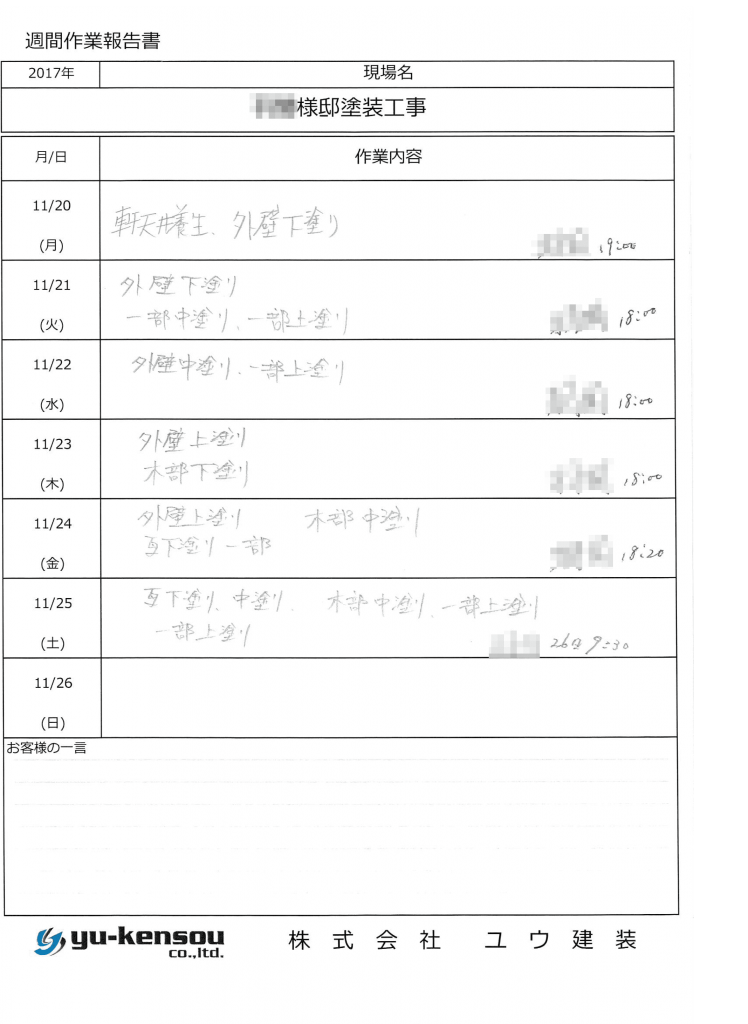 週間作業報告書
2017年 現場名
様邸塗装工事
月/日 作業内容
11/20
(月)
軒天井養生、外壁下塗り
19:00
11/21
(火)
外壁下塗り
一部中塗り、一部上塗り
18:00
11/22
(水)
外壁中塗り、一部上塗り
18:00
11/23
(木)
外壁上塗り
木部下塗り
18:00
11/24
(金)
外壁上塗り 木部中塗り
瓦下塗り一部
18:20
11/25
(土)
瓦下塗り、中塗り、 木部中塗り、一部上塗り
一部上塗り
26日 9:30
11/26
(日)
お客様の一言
yu-kensou
co.,ltd.
株式会社 ユウ建装